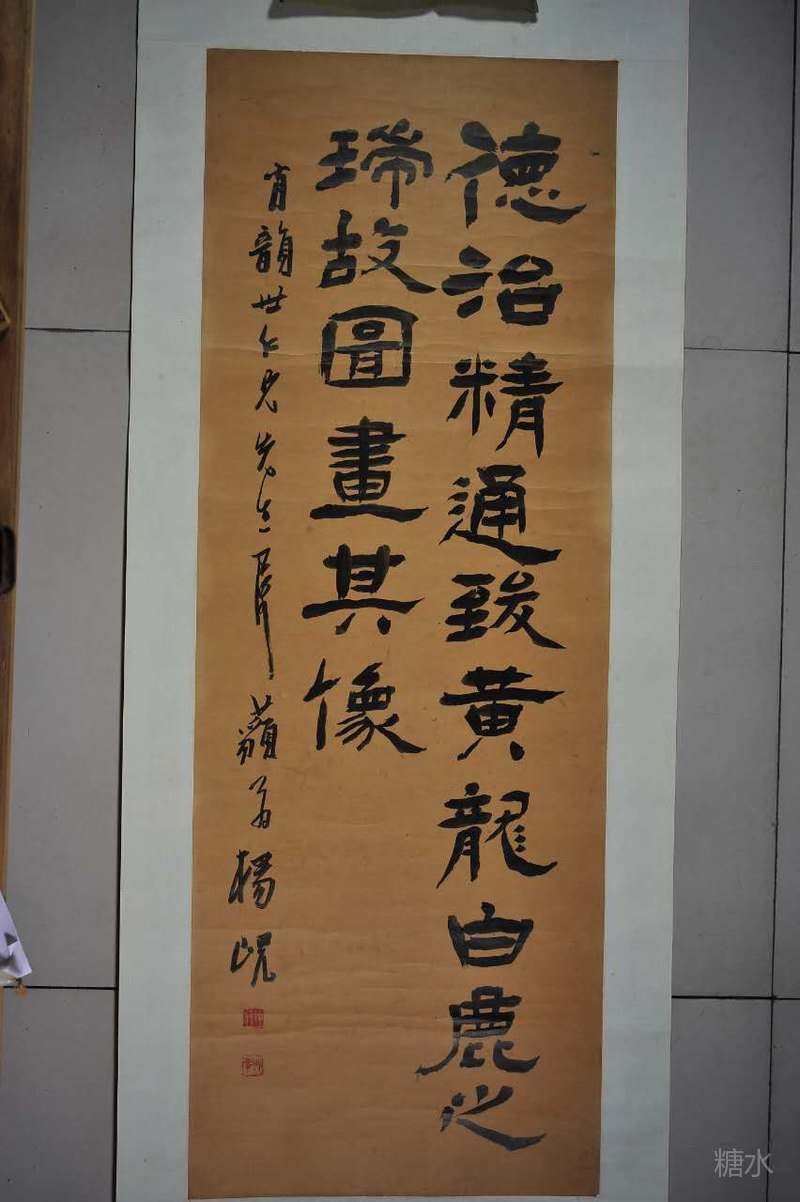 德治精通致黃龍白鹿之
瑞故圖畫其像
肖韻世仁兄先生屬 藐翁楊峴
糖水